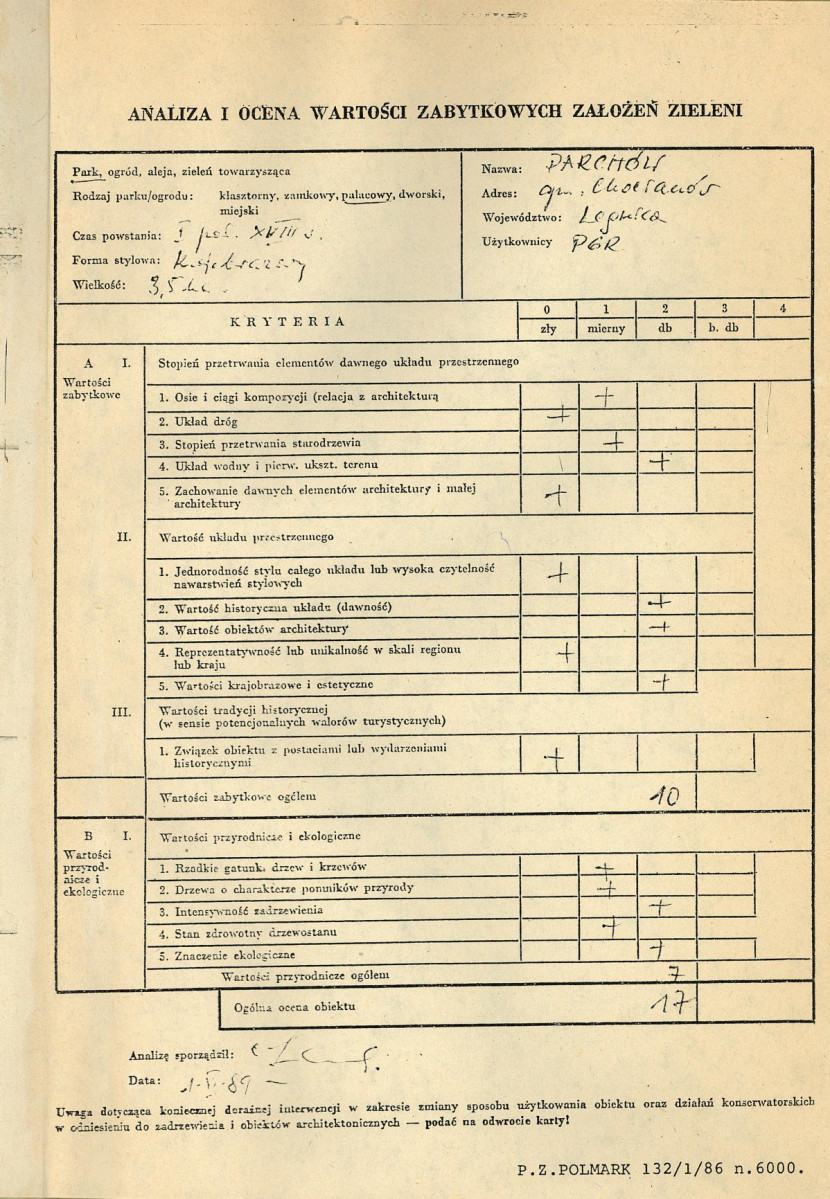 ANALIZA I OCENA WARTOŚCI ZABYTKOWYCH ZAŁOŻEŃ ZIELENI
Park, ogród, aleja, zieleń towarzysząca
Rodzaj parku/ogrodu: klasztorny, zamkowy, pałacowy, dworski,
miejski
Czas powstania: I poł. XVIII w.
Forma stylowa: Krajobrazowy
Wielkość: 3,5 ha.
Nazwa: PARCHÓW
Adres: gm. Chocianów
Województwo: Legnica
Użytkownicy PGR
KRYTERIA
0 1 2 3 4
zły mierny db b. db
A I. Stopień przetrwania elementów dawnego układu przestrzennego
Wartości
zabytkowe
1. Osie i ciągi kompozycji (relacja z architekturą +
2. Układ dróg +
3. Stopień przetrwania starodrzewia +
4. Układ wodny i pierw. ukszt. terenu +
5. Zachowanie dawnych elementów architektury i małej +
architektury
II. Wartość układu przestrzennego
1. Jednorodność stylu całego układu lub wysoka czytelność +
nawarstwień stylowych
2. Wartość historyczna układu (dawność) +
3. Wartość obiektów architektury +
4. Reprezentatywność lub unikalność w skali regionu +
lub kraju
5. Wartości krajobrazowe i estetyczne +
III. Wartości tradycji historycznej
(w sensie potencjonalnych walorów turystycznych)
1. Związek obiektu z postaciami lub wydarzeniami +
historycznymi
Wartości zabytkowe ogółem 10
B I. Wartości przyrodnicze i ekologiczne
Wartości
przyrod-
nicze i
ekologiczne
1. Rzadkie gatunk. drzew i krzewów +
2. Drzewa o charakterze pomników przyrody +
3. Intensywność zadrzewienia +
4. Stan zdrowotny drzewostanu +
5. Znaczenie ekologiczne +
Wartości przyrodnicze ogółem 7
Ogólna ocena obiektu 17
Analizę sporządził:
Data:
Uwaga dotycząca koniecznej doraźnej interwencji w zakresie zmiany sposobu użytkowania obiektu oraz działań konserwatorskich
w odniesieniu do zadrzewienia i obiektów architektonicznych — podać na odwrocie karty!
P.Z.POLMARK 132/1/86 n.6000.